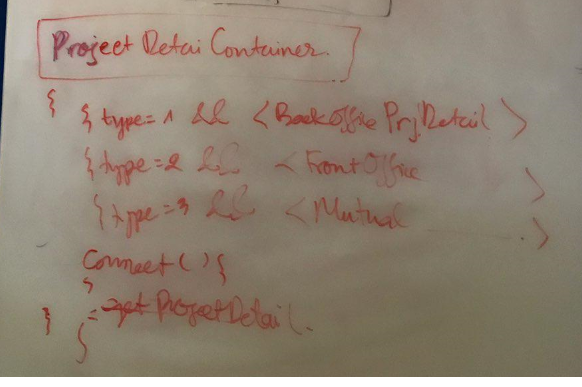 Project Detai Container.
{
{ type = 1 && < BackOffice PrjDetail >
{ type = 2 && < FrontOffice >
{ type = 3 && < Mutual >
Connect ( ) {
}
= get ProjectDetail.
}
}